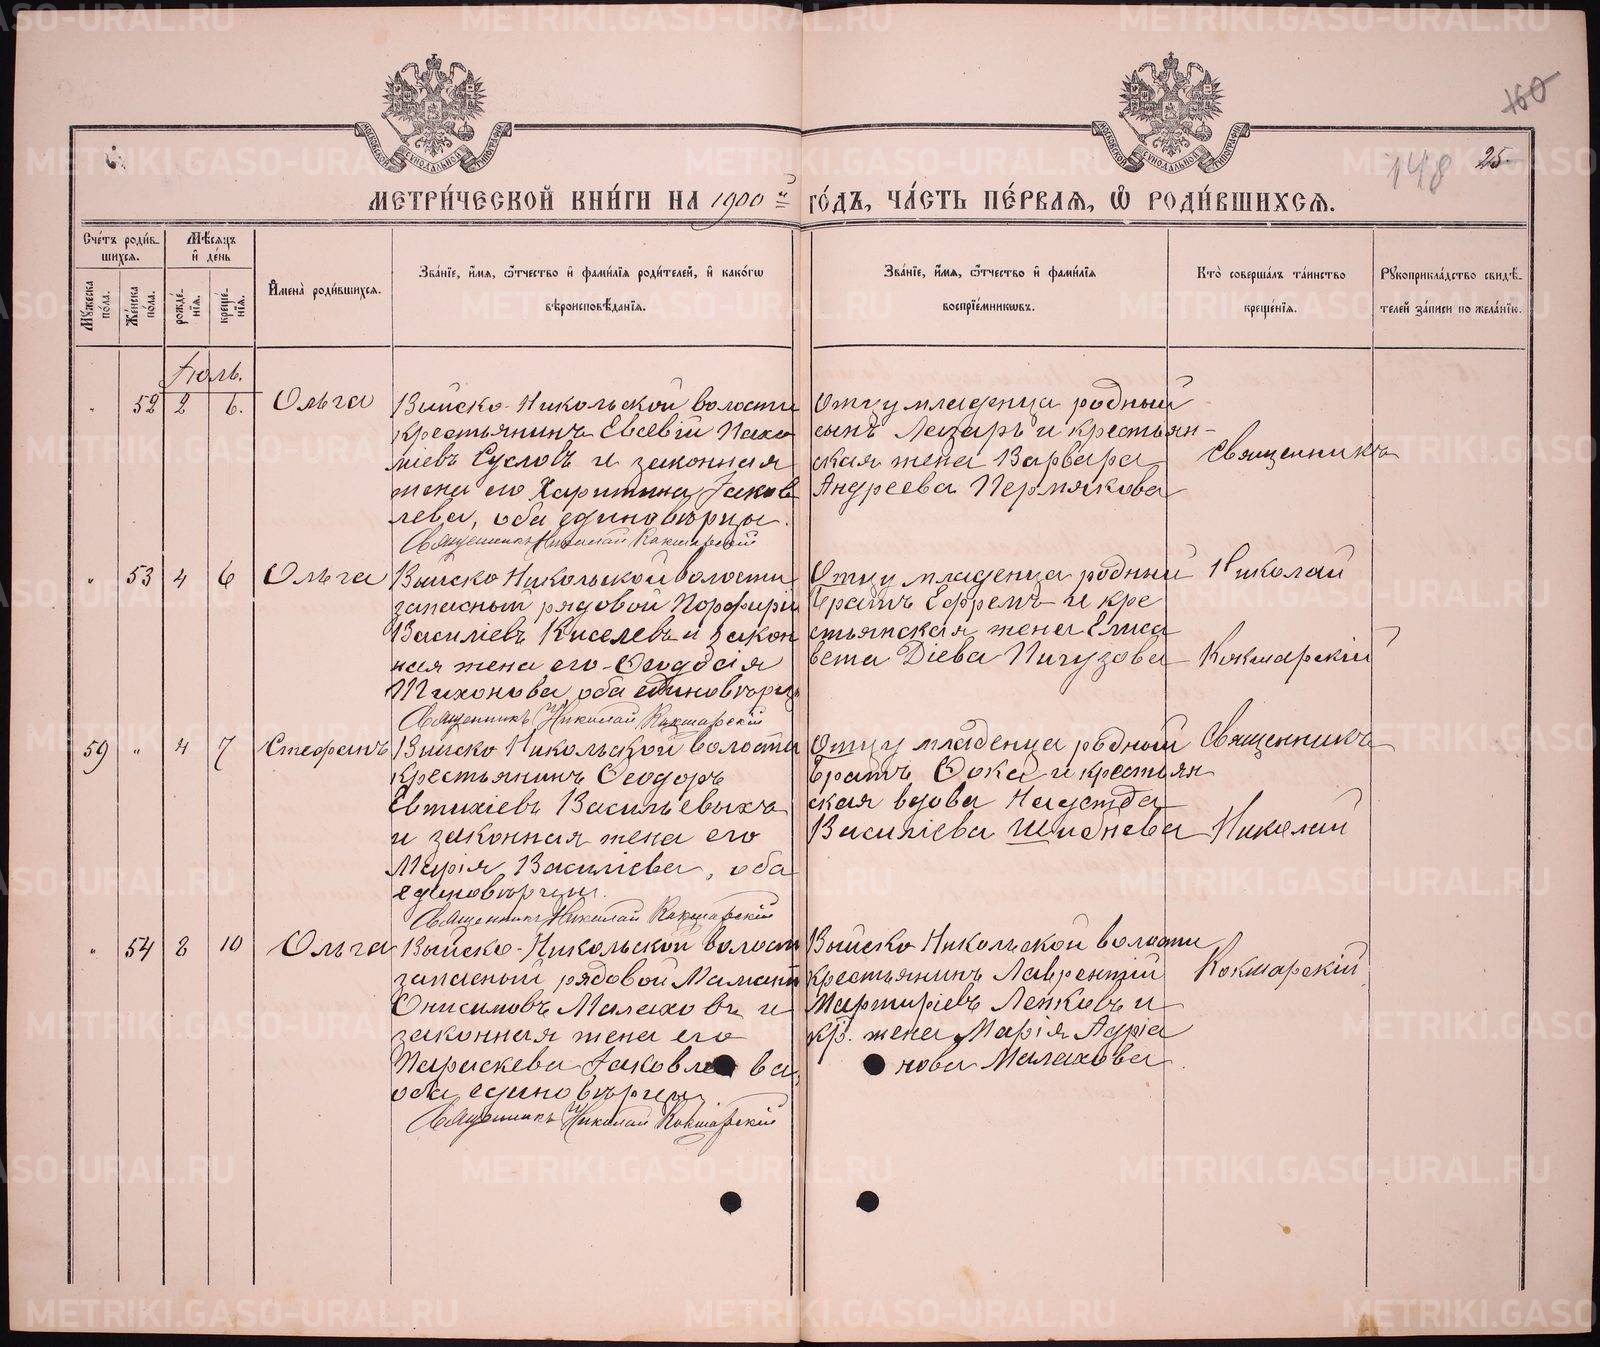 160
148
25.
МЕТРИ́ЧЕСКОЙ КНИ́ГИ НА 1900 й ГО́ДЪ, ЧА́СТЬ ПЕ́РВАЯ, Ѡ РОДИ́ВШИХСЯ.
Сче́тъ роди́в-
шихся.
Мѣ́сяцъ
и҆ де́нь
Мꙋ́жеска по́ла.
Же́нска по́ла.
рожде́-
нїѧ.
креще́-
нїѧ.
И҆мена̀ роди́вшихся.
Зва́нїе, и҆́мѧ, ѻ҆́тчество и҆ фами́лїѧ роди́телей, и҆ како́гѡ
вѣроисповѣ́данїѧ.
Зва́нїе, и҆́мѧ, ѻ҆́тчество и҆ фами́лїѧ
воспрїе́мникѡвъ.
Кто̀ соверша́лъ та́инство
креще́нїѧ.
Рꙋкоприкла́дство свидѣ́-
телей за́писи по жела́нїю.
Іюль.
" 52 2 6. Ольга
Выйско-Никольской волости
крестьянинъ Евсевій Пахо
міевъ Сусловъ и законная
жена его Харитина Іаков
лева, оба единовѣрцы.
Священникъ Николай Кокшарскій
Отцу младенца родный
сынъ Лазарь и крестьян-
ская жена Варвара
Андреева Пермякова
Священникъ
" 53 4 6 Ольга
Выйско Никольской волости
запасный рядовой Порфирій
Василіевъ Киселевъ и закон
ная жена его Ѳеодосія
Тихонова, оба единовѣрцы
Священникъ Николай Кокшарскій
Отцу младенца родный
братъ Ефремъ и кре
стьянская жена Елиса
вета Діева Пичугова
Николай
Кокшарскій
59 " 4 7 Стефанъ
Выйско Никольской волости
крестьянинъ Ѳеодоръ
Евтихіевъ Васильевыхъ
и законная жена его
Марія Василіева, оба
единовѣрцы.
Священникъ Николай Кокшарскій
Отцу младенца родный
братъ Ѳока и крестьян
ская вдова
Василіева Шибнева
Священникъ
Николай
" 54 8 10 Ольга
Выйско-Никольской волости
запасный рядовой
Онисимовъ Малаховъ и
законная жена его
Параскева Іаковлева,
оба единовѣрцы
Священникъ Николай Кокшарскій
Выйско Никольской волости
крестьянинъ Лаврентій
Мартиріевъ Лепковъ и
кр. жена Марія Адріа
нова Малахова.
Кокшарскій
METRIKI.GASO-URAL.RU